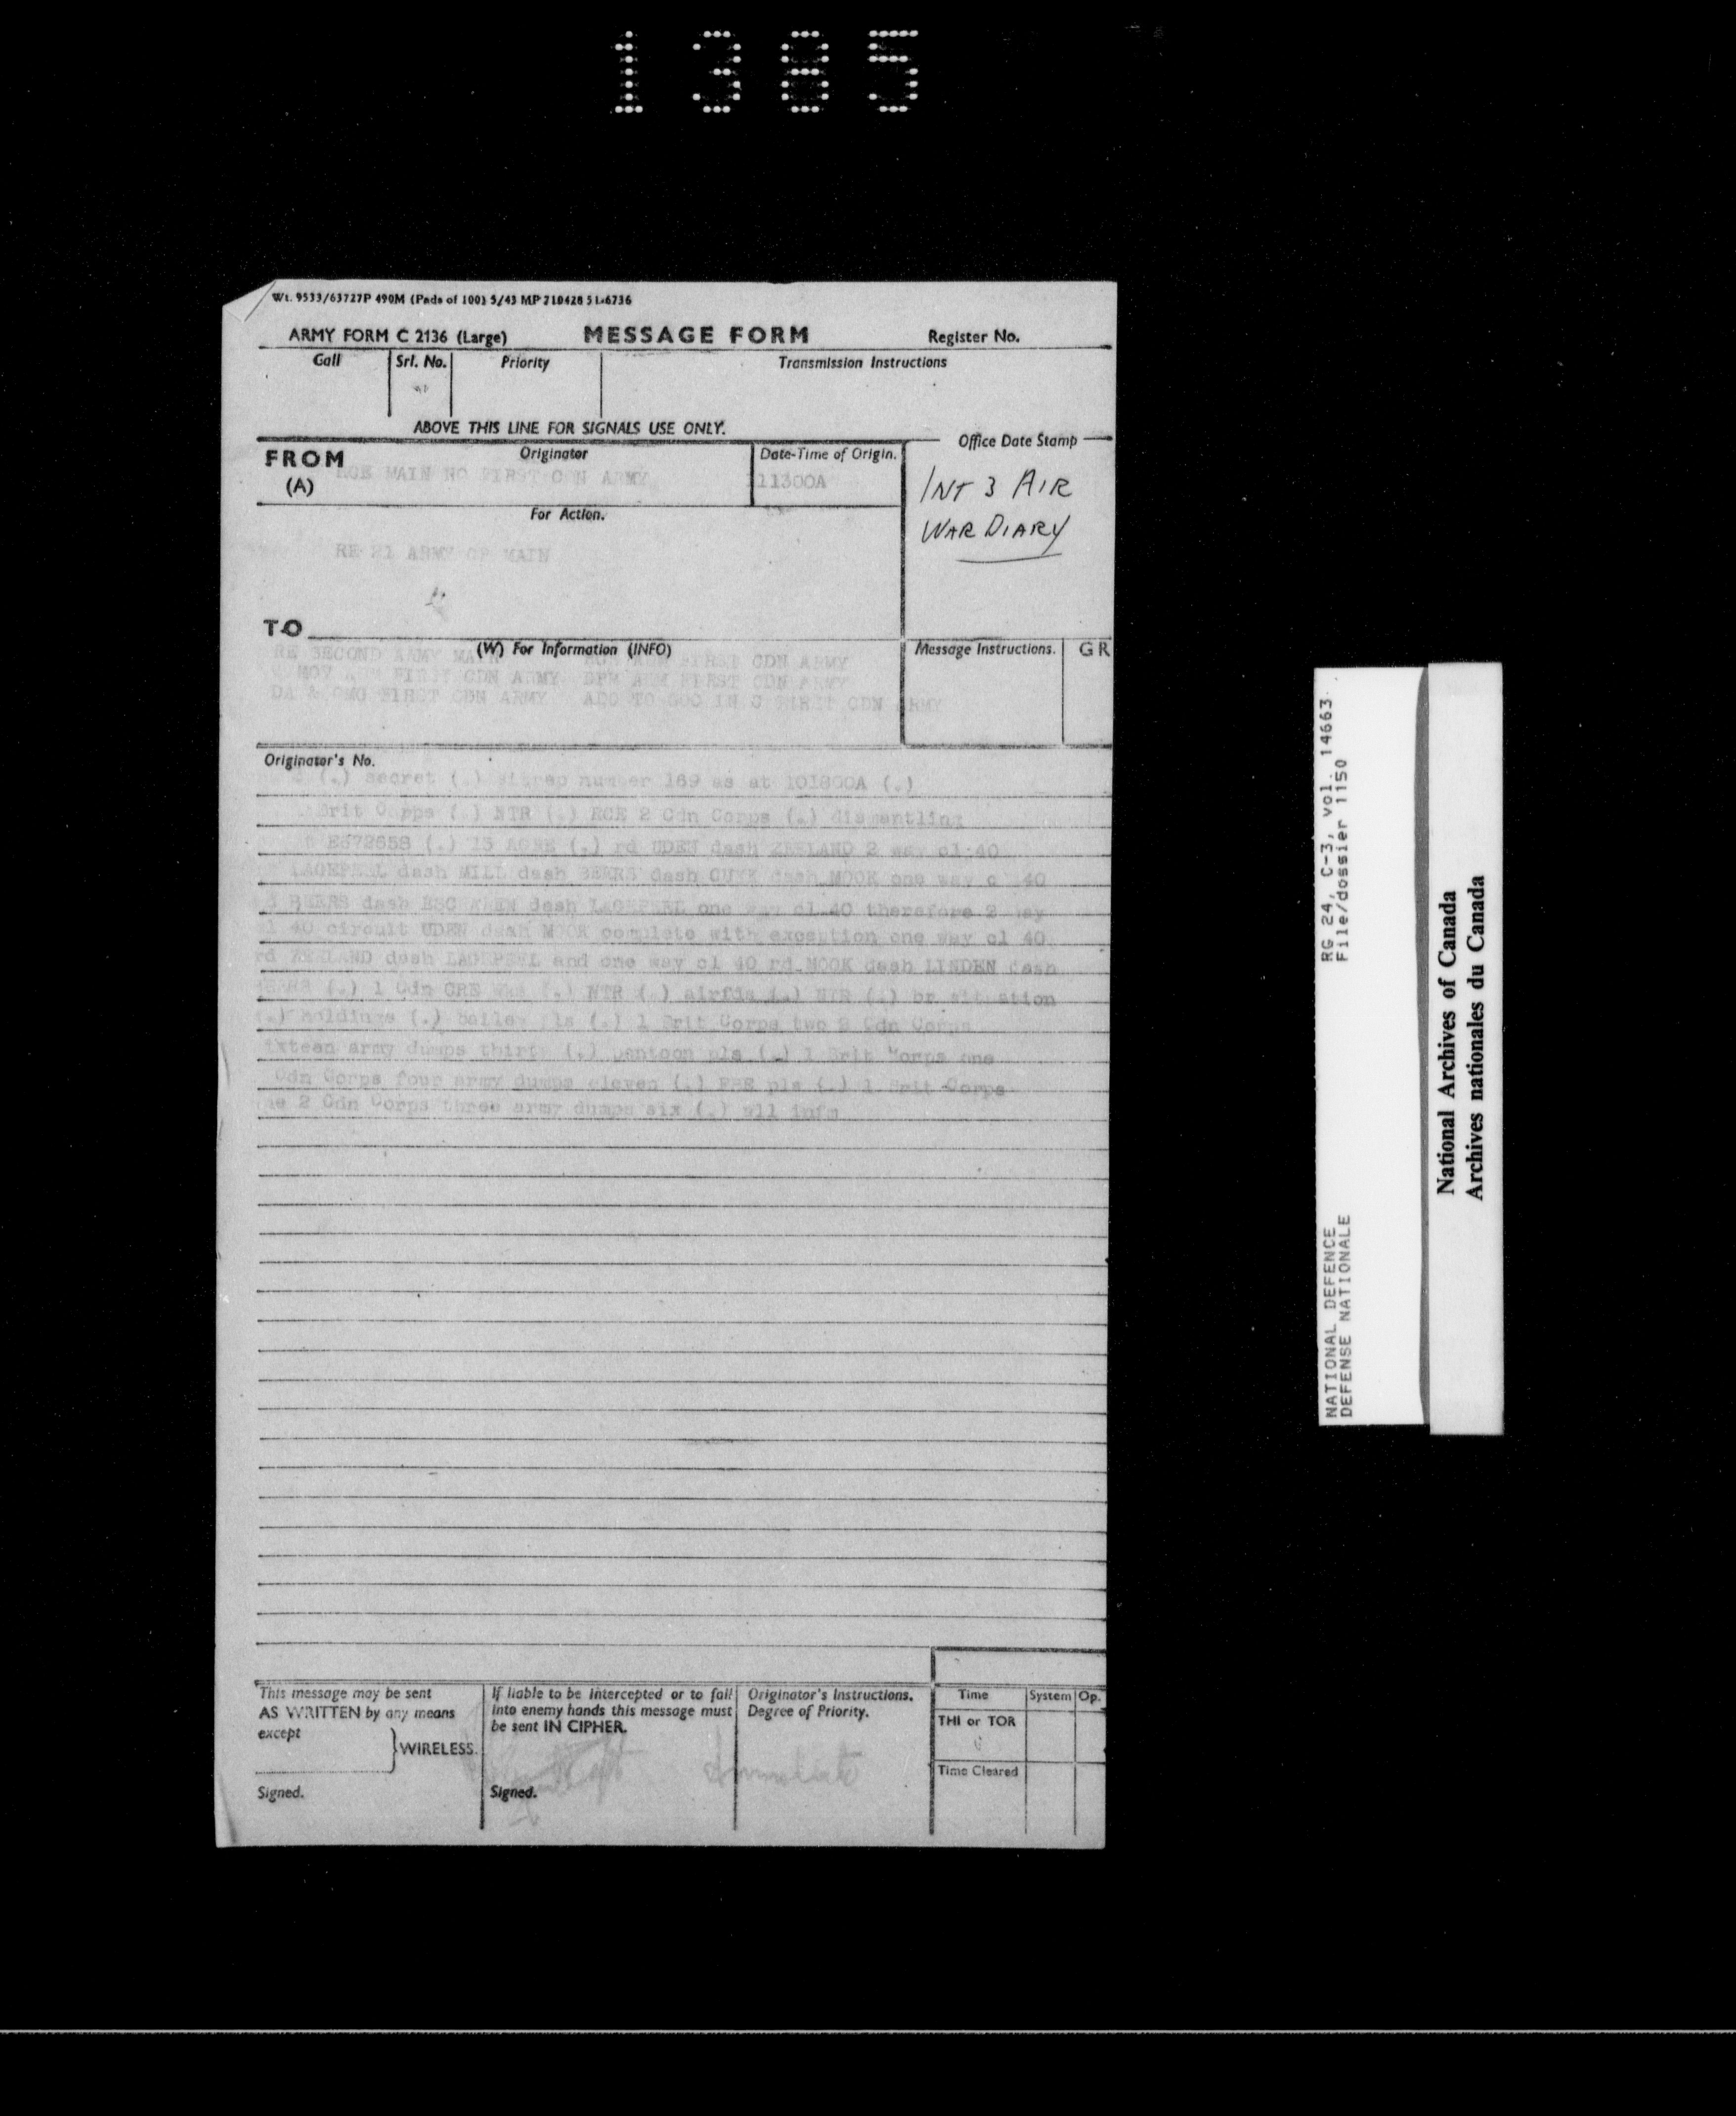 1385
Wt. 9533/63727P 490M (Pads of 100) 5/43 MP 710428 51-6736
ARMY FORM C 2136 (Large) MESSAGE FORM Register No.
Call Srl. No. Priority Transmission Instructions
ABOVE THIS LINE FOR SIGNALS USE ONLY.
FROM (A) Originator Date-Time of Origin. Office Date Stamp
MAIN HQ FIRST CDN ARMY 111300A
INT 3 AIR
WAR DIARY
For Action.
RE 21 ARMY GP MAIN
TO
(W) For Information (INFO) Message Instructions. GR
RE SECOND ARMY MAIN FIRST CDN ARMY
FIRST CDN ARMY FIRST CDN ARMY
DA & QMG FIRST CDN ARMY ADC TO GOC IN C FIRST CDN ARMY
Originator's No.
(.) secret (.) sitrep number 169 as at 101800A (.)
Brit Corps (.) NTR (.) RCE 2 Cdn Corps (.) dismantling
E672658 (.) 13 AGRE (.) rd UDEN dash ZEELAND 2 way cl 40
LAGEPEEL dash MILL dash BEERS dash CUYK dash MOOK one way cl 40
BEERS dash ESC dash LAGEPEEL one way cl 40 therefore 2 way
cl 40 circuit UDEN dash MOOK complete with exception one way cl 40
rd ZEELAND dash LAGEPEEL and one way cl 40 rd MOOK dash LINDEN dash
BEERS (.) 1 Cdn GRE Wks (.) NTR (.) airfds (.) NTR (.) br situation
(.) holdings (.) bailey pls (.) 1 Brit Corps two 2 Cdn Corps
ixteen army dumps thirty (.) pontoon pls (.) 1 Brit Corps one
Cdn Corps four army dumps eleven (.) FBE pls (.) 1 Brit Corps
ne 2 Cdn Corps three army dumps six (.) all infm
This message may be sent
AS WRITTEN by any means
except
WIRELESS.
Signed.
If liable to be intercepted or to fall
into enemy hands this message must
be sent IN CIPHER.
Signed.
Originator's Instructions.
Degree of Priority.
Immediate
Time System Op.
THI or TOR
Time Cleared
RG 24, C-3, vol. 14663
File/dossier 1150
NATIONAL DEFENCE
DEFENSE NATIONALE
National Archives of Canada
Archives nationales du Canada